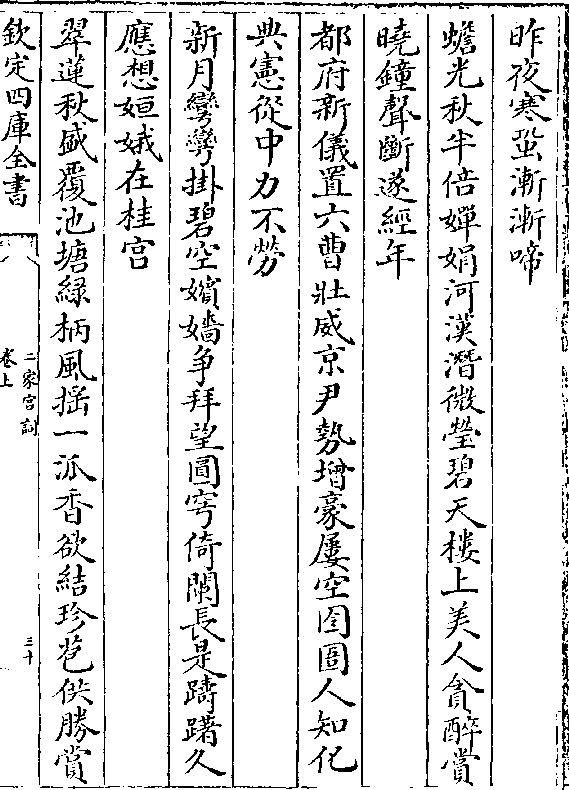 昨夜寒蛩漸漸啼
蟾光秋半倍嬋娟河漢潛微瑩碧天樓上美人貪醉賞
曉鐘聲斷遂經年
都府新儀置六曹壯威京尹勢增豪屢空囹圄人知化
典憲從中力不勞
新月彎彎掛碧空嬪嬙爭拜望圓穹倚闌長是躊躇久
應想姮娥在桂宫
翠蓮秋盛覆池塘緑柄風揺一派香欲結珍苞供勝賞
欽定四庫全書
二家宫詞
卷上
三十